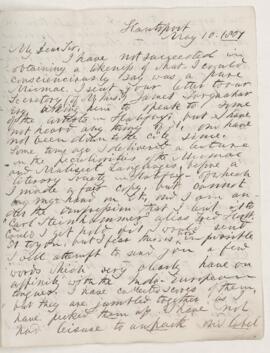 Hantsport
May 10. 1887
My Dear Sir,
I have not succeeded in
obtaining a likeness of what I could
conscienciously say was a pure
Micmac. I sent your letter to our
Secretary, of Miss. James Farquhar
Esq asking him to speak to some
of the artists in Halifax, but I have
not heard any thing of it, nor have
not been down to the City since
Some time ago I delivered a lecture
on the peculiarities of the Micmac
and Maliseet Languages, before a
Literary Society in Halifax of which
I made a fair copy, but cannot
lay my hand on it, now I am an
I could get hold of it I would send
it to you, but I fear this is impossible
I will attempt to send you a few
words which very clearly have an
affinity with the Indo-European
tongues. I have collected scores of them,
but they are jumbled together as I
have picked them up & I have not
had leisure to unpack this label